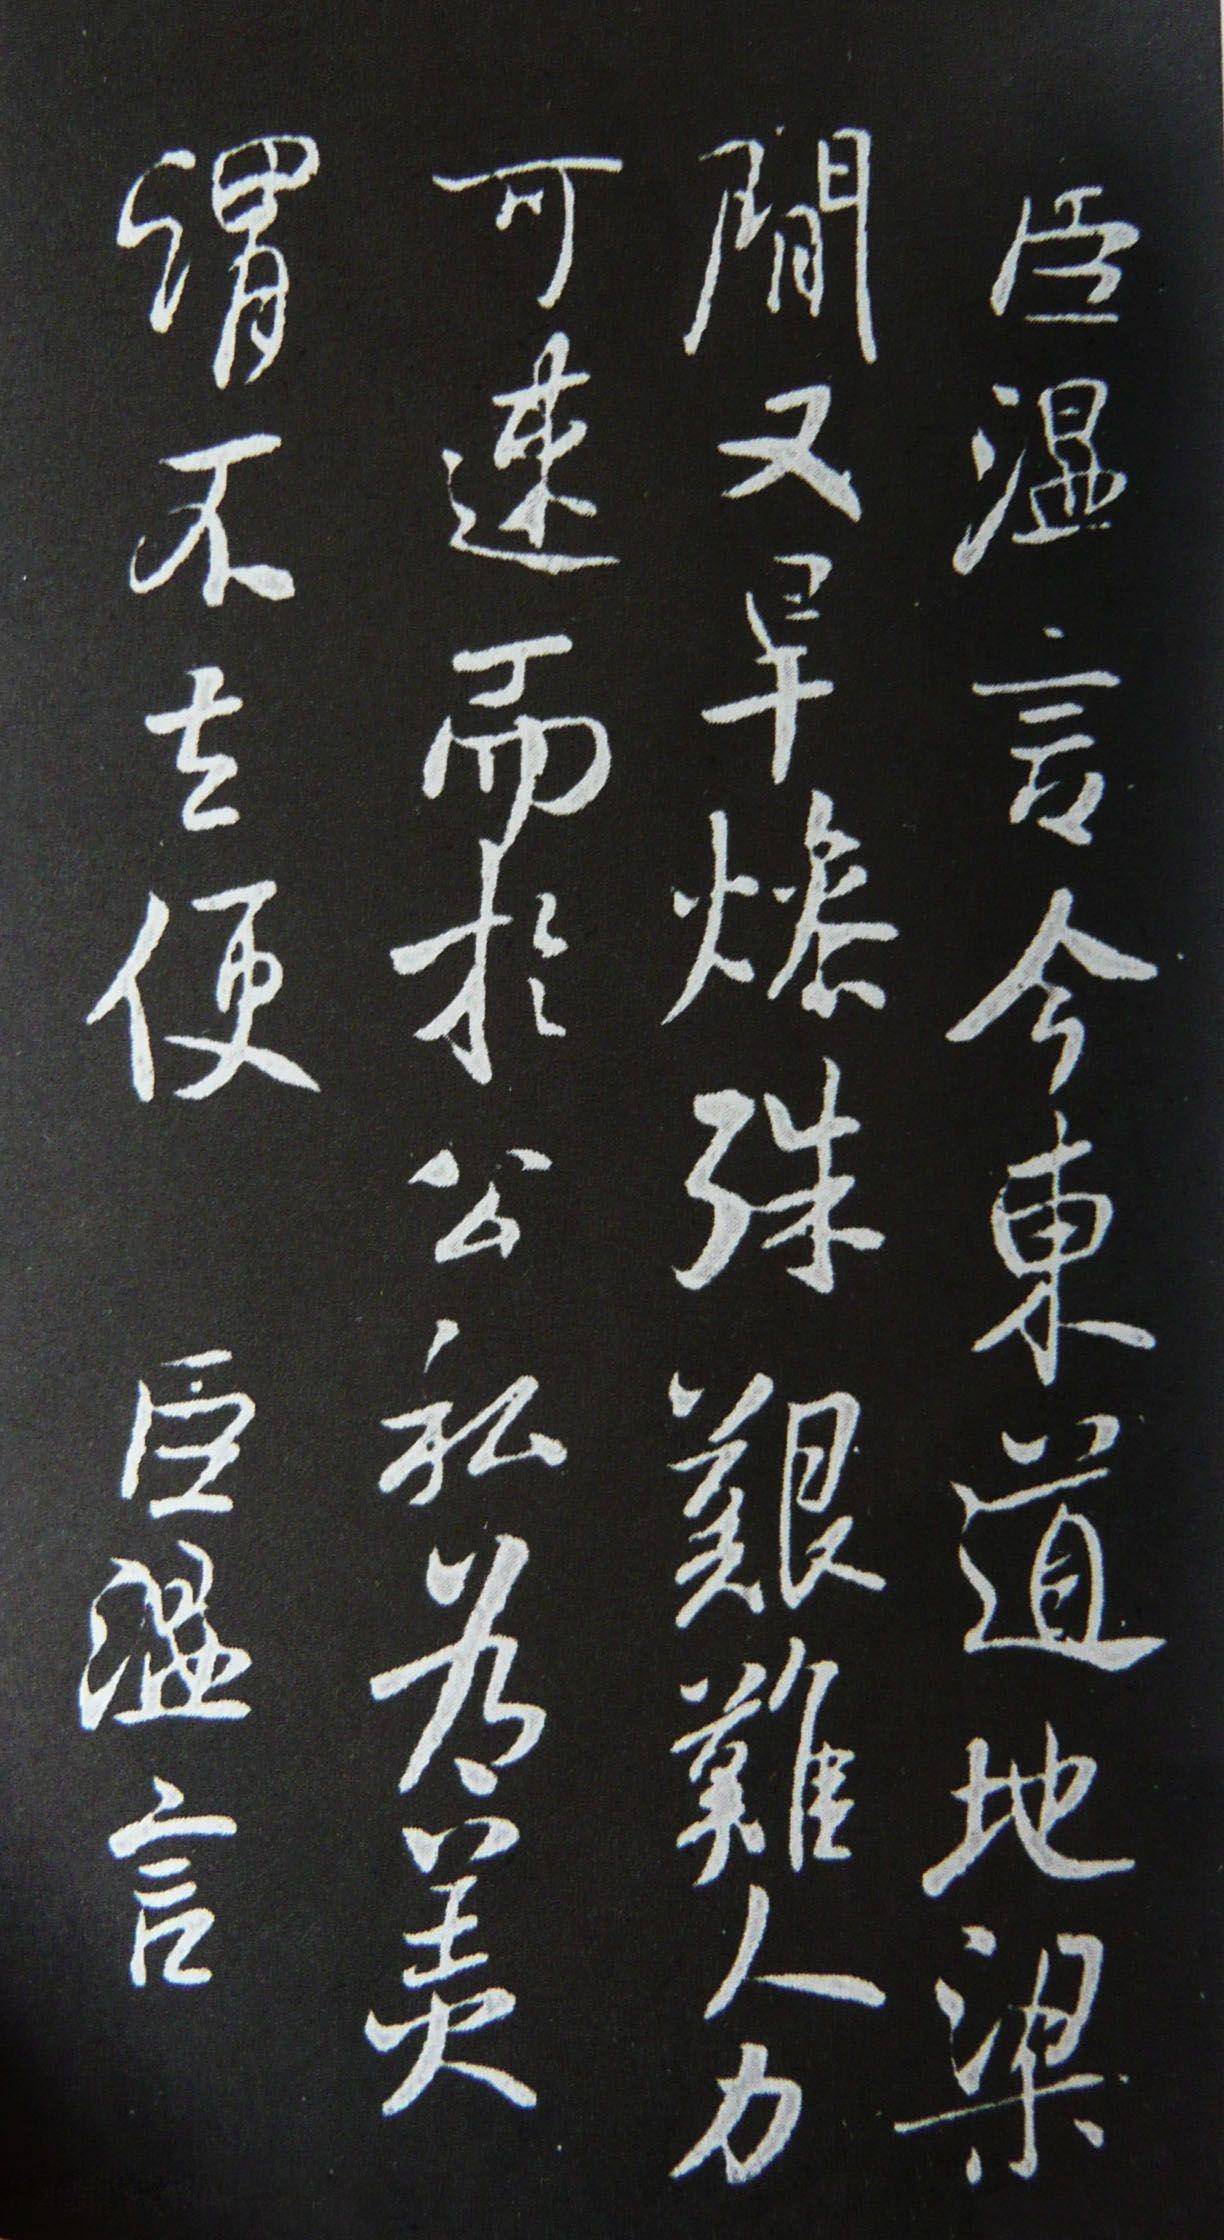 臣温言今東道地梁
間又旱燥殊艱難人力
可速而於公私為美
謂不去便 臣温言